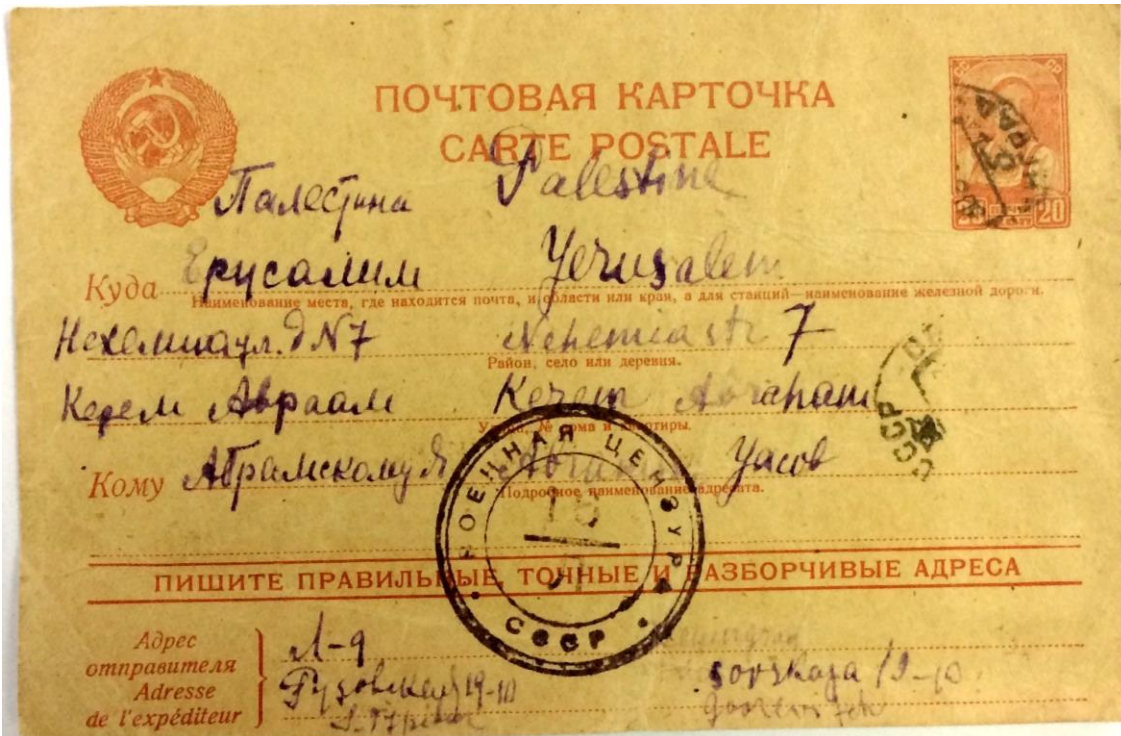 ПОЧТОВАЯ КАРТОЧКА
CARTE POSTALE
20 20
Палестина Palestine
Куда Ерусалим Yerusalem
Наименование места, где находится почта, и области или края, а для станций—наименование железной дороги.
Нехемиа ул. д N7 Nehemia str 7
Район, село или деревня.
Керем Авраам Kerem Abraham
Улица, № дома и квартиры.
Кому Абрамскому Я Yacob
Подробное наименование адресата.
ВОЕННАЯ ЦЕНЗУРА
СССР
СССР
ПИШИТЕ ПРАВИЛЬНЫЕ, ТОЧНЫЕ И РАЗБОРЧИВЫЕ АДРЕСА
Адрес
отправителя
Adresse
de l'expéditeur
Л-д Leningrad
19-10 19-10